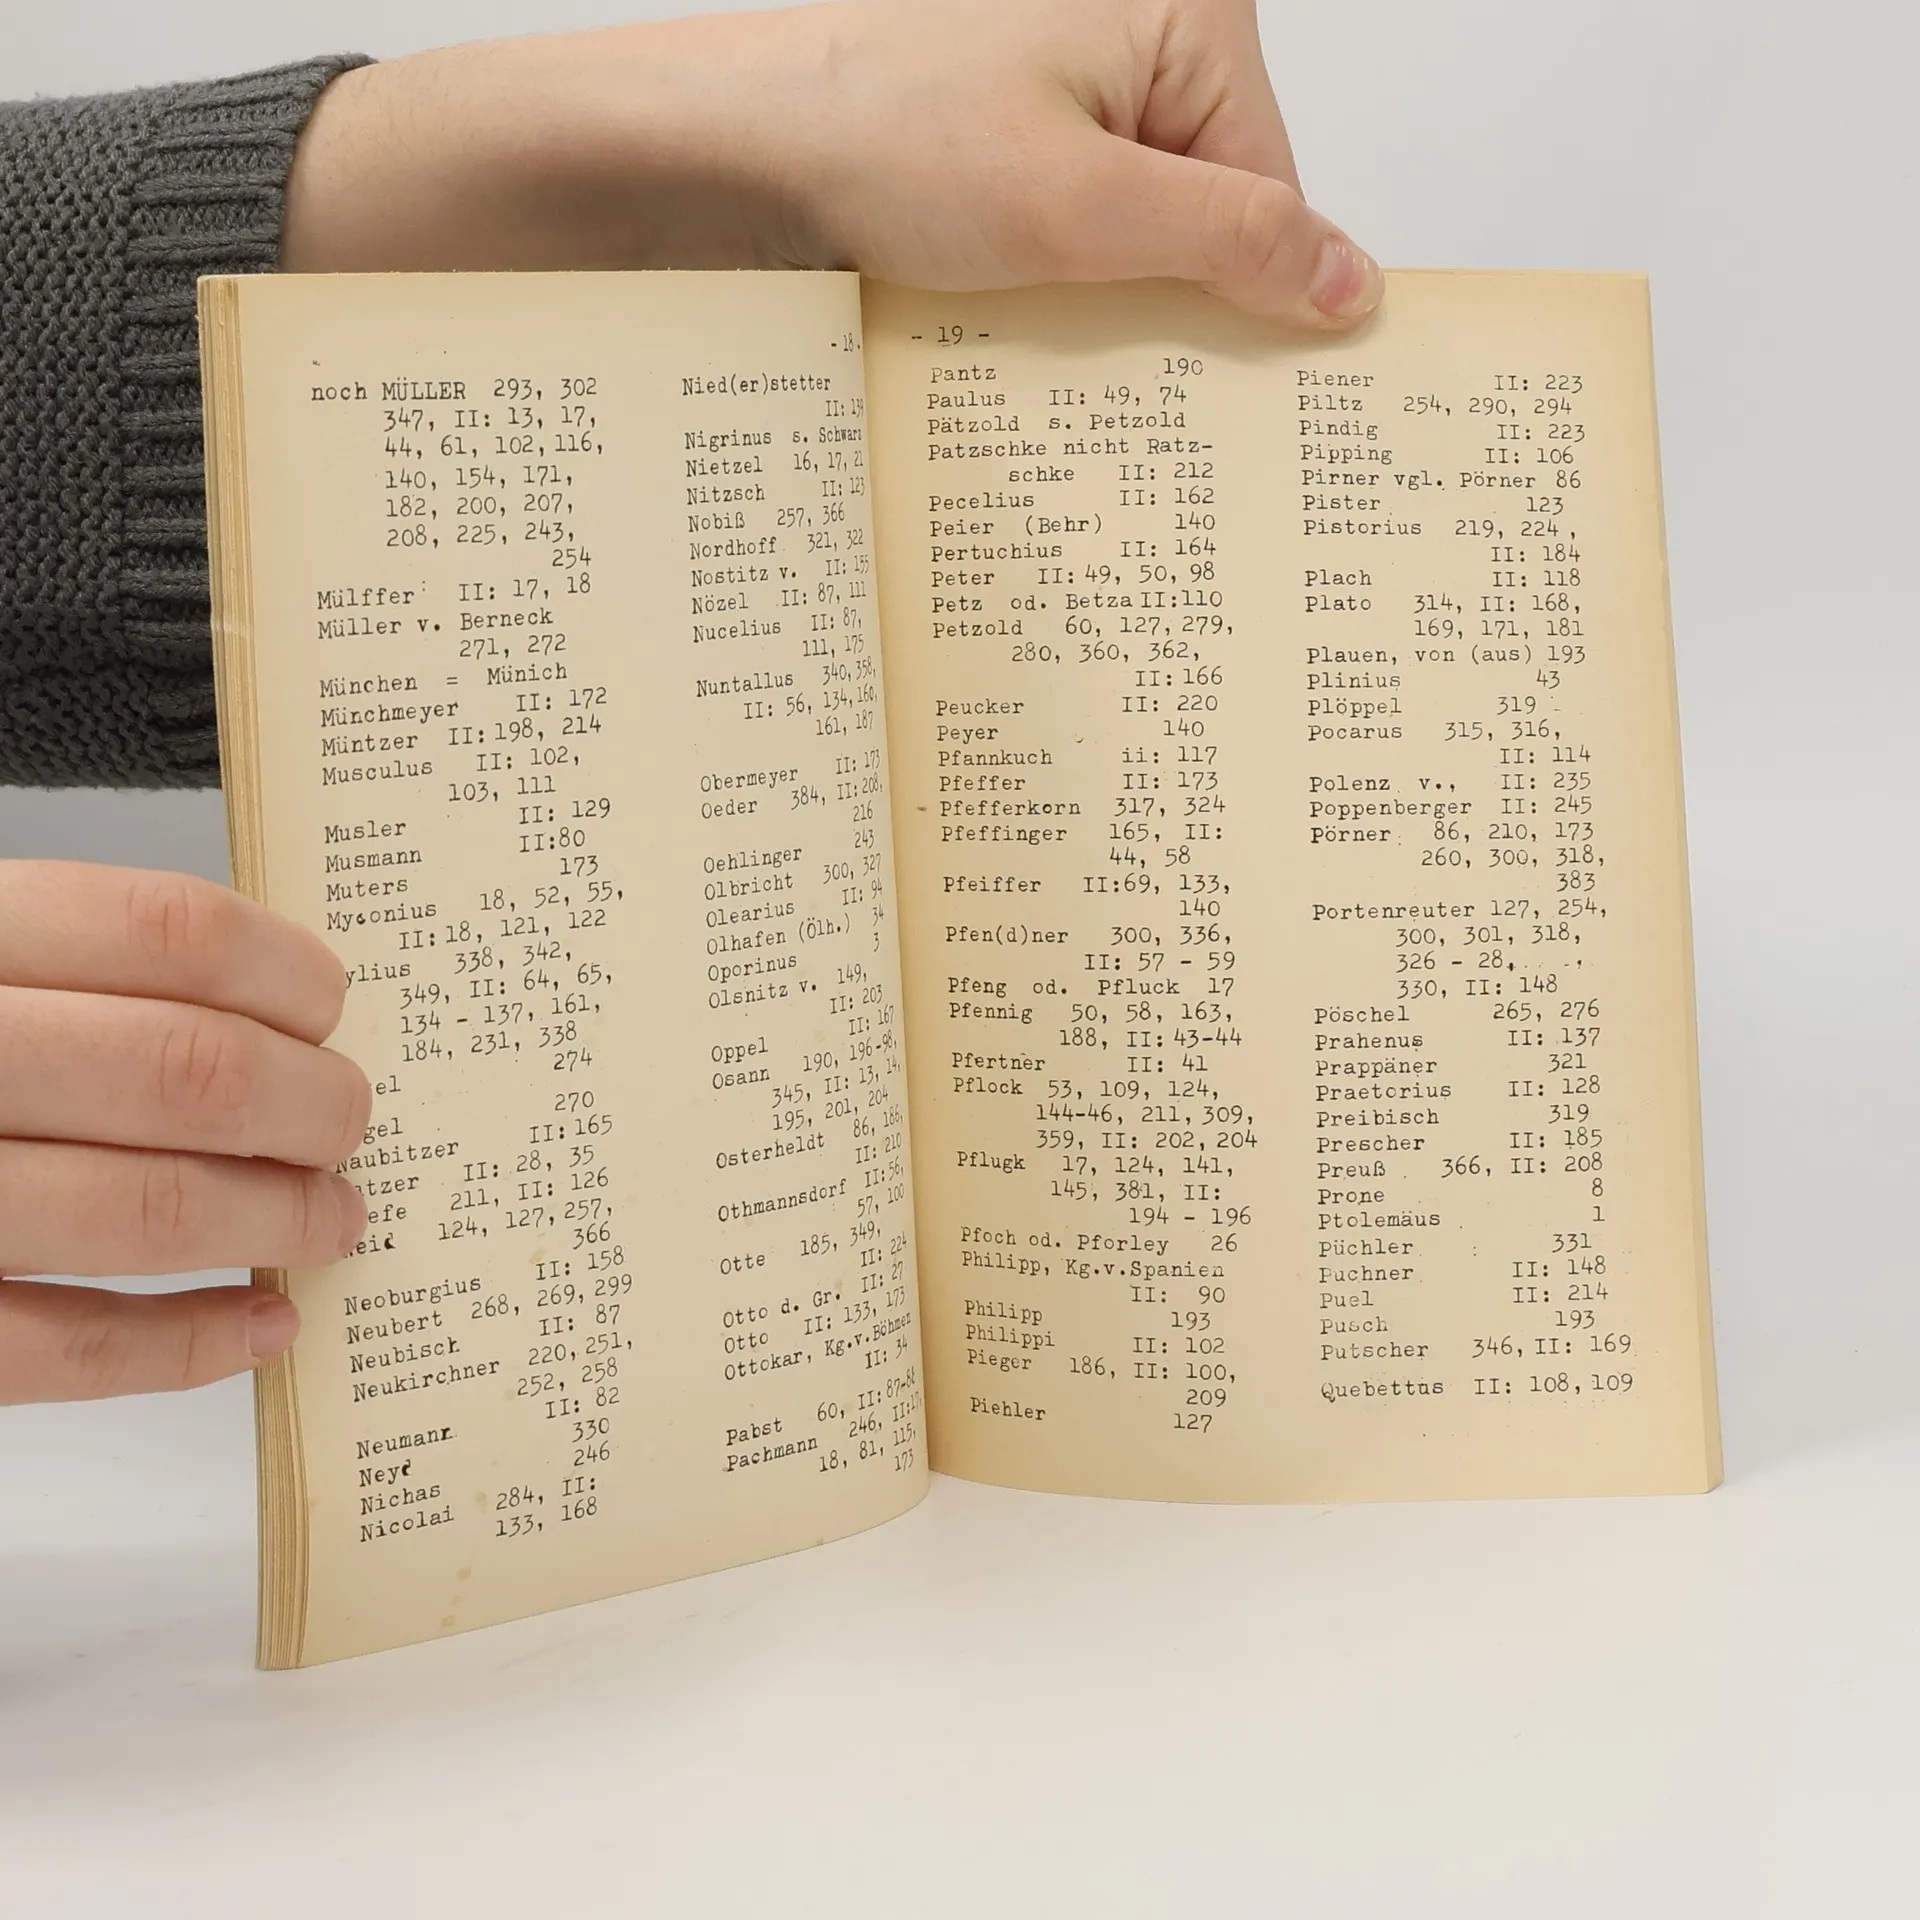 - 18
noch MÜLLER 293, 302
347, II: 13, 17,
44, 61, 102, 116,
140, 154, 171,
182, 200, 207,
208, 225, 243,
254
Mülffer II: 17, 18
Müller v. Berneck
271, 272
München = Münich
Münchmeyer II: 172
Müntzer II: 198, 214
Musculus II: 102,
103, 111
Musler II: 129
Musmann II:80
Muters 173
Myconius 18, 52, 55,
II: 18, 121, 122
ylius 338, 342,
349, II: 64, 65,
134 - 137, 161,
184, 231, 338
el 274
gel 270
Naubitzer II: 165
tzer II: 28, 35
efe 211, II: 126
eid 124, 127, 257,
366
Neoburgius II: 158
Neubert 268, 269, 299
Neubisch II: 87
Neukirchner 220, 251,
252, 258
Neumann II: 82
Neyd 330
Nichas 246
Nicolai 284, II:
133, 168
Nied(er)stetter
II: 139
Nigrinus s. Schwarz
Nietzel 16, 17, 21
Nitzsch II: 123
Nobiß 257, 366
Nordhoff 321, 322
Nostitz v. II: 155
Nözel II: 87, 111
Nucelius II: 87,
111, 175
Nuntallus 340, 358,
II: 56, 134, 160,
161, 187
Obermeyer II: 173
Oeder 384, II: 208,
216
Oehlinger 243
Olbricht 300, 327
Olearius II: 94
Olhafen (Ölh.) 34
Oporinus 3
Olsnitz v. 149,
II: 203
Oppel II: 167
Osann 190, 196-98,
345, II: 13, 14,
195, 201, 204
Osterheldt 86, 186,
II: 210
Othmannsdorf II: 56,
57, 100
Otte 185, 349,
II: 224
Otto d. Gr. II: 27
Otto II: 133, 173
Ottokar, Kg.v.Böhmen
II: 34
Pabst 60, II: 87-88
Pachmann 246, II:17,
18, 81, 115,
173
- 19 -
Pantz 190
Paulus II: 49, 74
Pätzold s. Petzold
Patzschke nicht Ratz-
schke II: 212
Pecelius II: 162
Peier (Behr) 140
Pertuchius II: 164
Peter II: 49, 50, 98
Petz od. Betza II:110
Petzold 60, 127, 279,
280, 360, 362,
II: 166
Peucker II: 220
Peyer 140
Pfannkuch ii: 117
Pfeffer II: 173
Pfefferkorn 317, 324
Pfeffinger 165, II:
44, 58
Pfeiffer II:69, 133,
140
Pfen(d)ner 300, 336,
II: 57 - 59
Pfeng od. Pfluck 17
Pfennig 50, 58, 163,
188, II: 43-44
Pfertner II: 41
Pflock 53, 109, 124,
144-46, 211, 309,
359, II: 202, 204
Pflugk 17, 124, 141,
145, 381, II:
194 - 196
Pfoch od. Pforley 26
Philipp, Kg.v.Spanien
II: 90
Philipp 193
Philippi II: 102
Pieger 186, II: 100,
209
Piehler 127
Piener II: 223
Piltz 254, 290, 294
Pindig II: 223
Pipping II: 106
Pirner vgl. Pörner 86
Pister 123
Pistorius 219, 224,
II: 184
Plach II: 118
Plato 314, II: 168,
169, 171, 181
Plauen, von (aus) 193
Plinius 43
Plöppel 319
Pocarus 315, 316,
II: 114
Polenz v., II: 235
Poppenberger II: 245
Pörner 86, 210, 173
260, 300, 318,
383
Portenreuter 127, 254,
300, 301, 318,
326 - 28,
330, II: 148
Pöschel 265, 276
Prahenus II: 137
Prappäner 321
Praetorius II: 128
Preibisch 319
Prescher II: 185
Preuß 366, II: 208
Prone 8
Ptolemäus 1
Püchler 331
Puchner II: 148
Puel II: 214
Pusch 193
Putscher 346, II: 169
Quebettus II: 108, 109